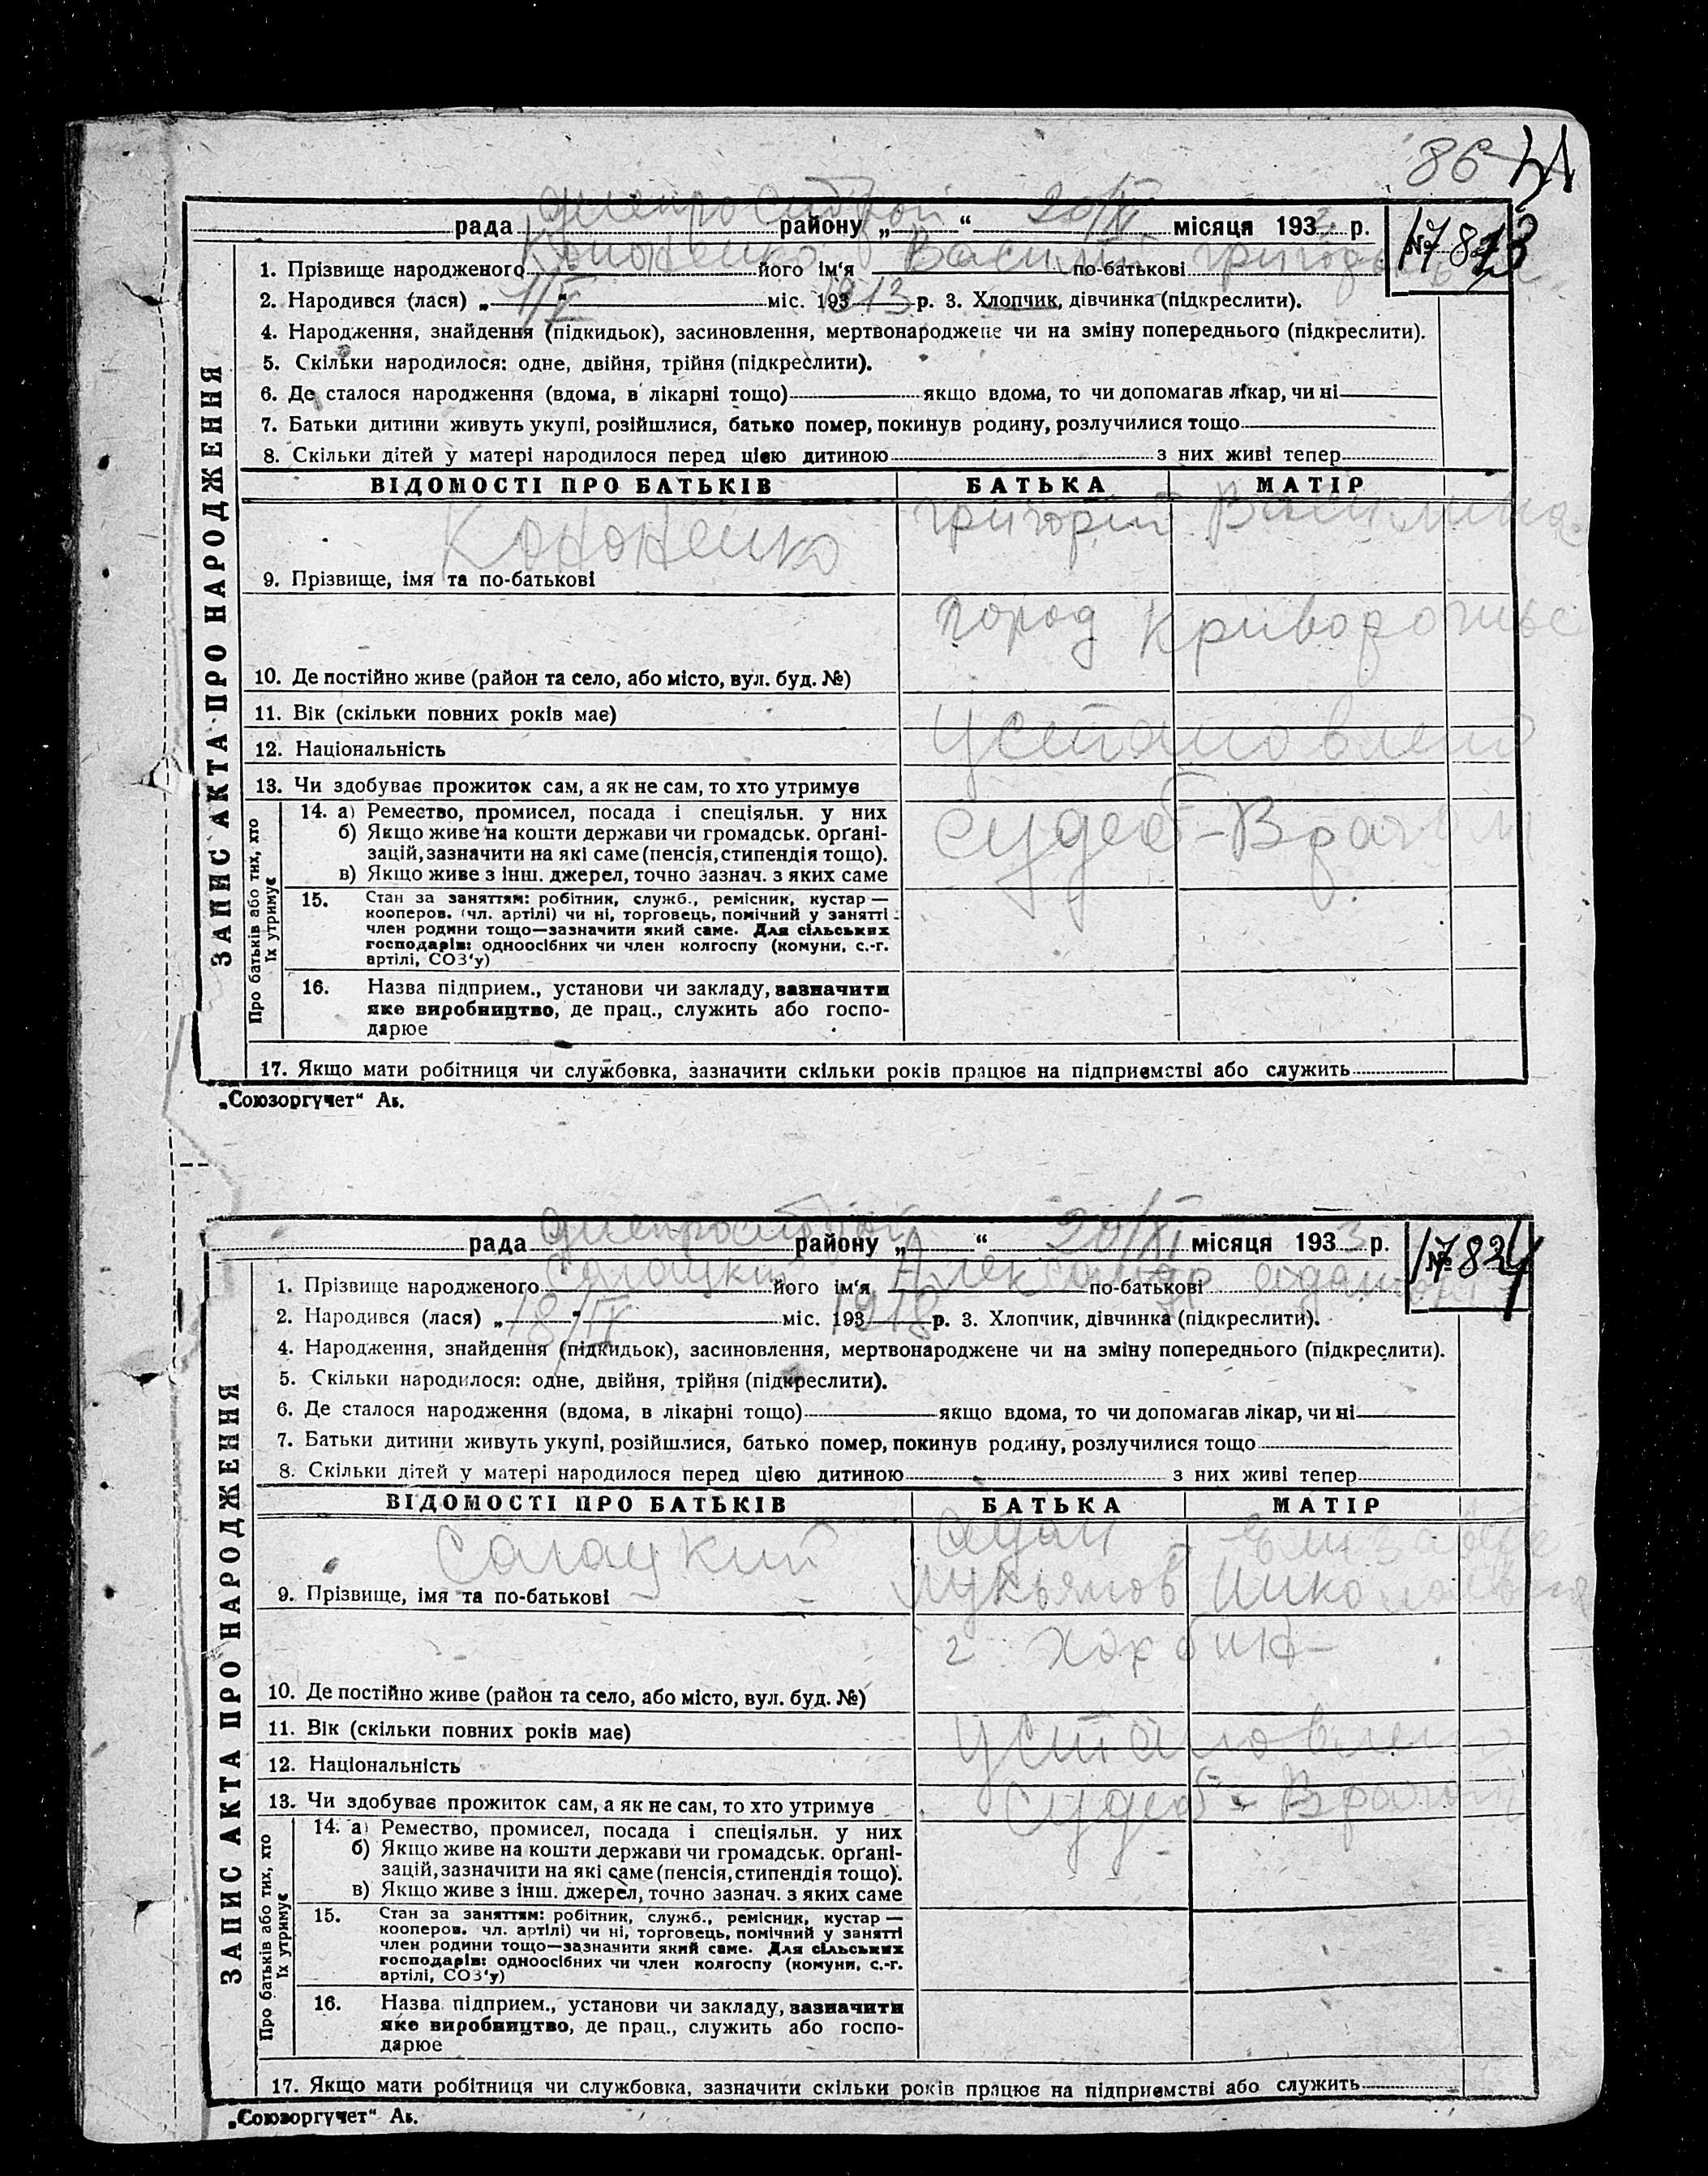 86
рада Днепрострой району „ “ 20/XI місяця 193 р.
1. Прізвище народженого Кононенко його ім‘я Василий по-батькові Григорьев
2. Народився (лася) „ 1/V “ міс. 1913 р. 3. Хлопчик, дівчинка (підкреслити).
4. Народження, знайдення (підкидьок), засиновлення, мертвонароджене чи на зміну попереднього (підкреслити).
5. Скільки народилося: одне, двійня, трійня (підкреслити).
6. Де сталося народження (вдома, в лікарні тощо) якщо вдома, то чи допомагав лікар, чи ні
7. Батьки дитини живуть укупі, розійшлися, батько помер, покинув родину, розлучилися тощо
8. Скільки дітей у матері народилося перед цією дитиною з них живі тепер
ЗАПИС АКТА ПРО НАРОДЖЕННЯ
ВІДОМОСТІ ПРО БАТЬКІВ БАТЬКА МАТІР
Кононенко Григорий Василина
9. Прізвище, імя та по-батькові
город Криворожье
10. Де постійно живе (район та село, або місто, вул. буд. №)
11. Вік (скільки повних років має)
12. Національність Установлено
13. Чи здобуває прожиток сам, а як не сам, то хто утримує
Про батьків або тих, хто їх утримує
14. а) Ремество, промисел, посада і спеціяльн. у них
б) Якщо живе на кошти держави чи громадськ. органі- Судеб-Врачом
зацій, зазначити на які саме (пенсія, стипендія тощо).
в) Якщо живе з інш. джерел, точно зазнач. з яких саме
15. Стан за заняттям: робітник, служб., ремісник, кустар —
кооперов. (чл. артілі) чи ні, торговець, помічний у занятті
член родини тощо—зазначити який саме. Для сільських
господарів: одноосібних чи член колгоспу (комуни, с.-г.
артілі, СОЗ‘у)
16. Назва підприєм., установи чи закладу, зазначити
яке виробництво, де прац., служить або госпо-
дарює
17. Якщо мати робітниця чи службовка, зазначити скільки років працює на підприємстві або служить
„Союзоргучет“ Ак.
рада Днепрострой району „ “ 20/XI місяця 1933 р. №
1. Прізвище народженого його ім‘я Александр по-батькові Адамов
2. Народився (лася) „ 18/IX “ міс. 1918 р. 3. Хлопчик, дівчинка (підкреслити).
4. Народження, знайдення (підкидьок), засиновлення, мертвонароджене чи на зміну попереднього (підкреслити).
5. Скільки народилося: одне, двійня, трійня (підкреслити).
6. Де сталося народження (вдома, в лікарні тощо) якщо вдома, то чи допомагав лікар, чи ні
7. Батьки дитини живуть укупі, розійшлися, батько помер, покинув родину, розлучилися тощо
8. Скільки дітей у матері народилося перед цією дитиною з них живі тепер
ЗАПИС АКТА ПРО НАРОДЖЕННЯ
ВІДОМОСТІ ПРО БАТЬКІВ БАТЬКА МАТІР
Адам Елизавета
9. Прізвище, імя та по-батькові Лукьянов Николаевна
г. Харбин
10. Де постійно живе (район та село, або місто, вул. буд. №)
11. Вік (скільки повних років має) Установлено
12. Національність
13. Чи здобуває прожиток сам, а як не сам, то хто утримує Судеб-Врачом
Про батьків або тих, хто їх утримує
14. а) Ремество, промисел, посада і спеціяльн. у них
б) Якщо живе на кошти держави чи громадськ. органі-
зацій, зазначити на які саме (пенсія, стипендія тощо).
в) Якщо живе з інш. джерел, точно зазнач. з яких саме
15. Стан за заняттям: робітник, служб., ремісник, кустар —
кооперов. чл. артілі) чи ні, торговець, помічний у занятті
член родини тощо—зазначити який саме. Для сільських
господарів: одноосібних чи член колгоспу (комуни, с.-г.
артілі, СОЗ‘у)
16. Назва підприєм., установи чи закладу, зазначити
яке виробництво, де прац., служить або госпо-
дарює
17. Якщо мати робітниця чи службовка, зазначити скільки років працює на підприємстві або служить
„Союзоргучет“ Ак.